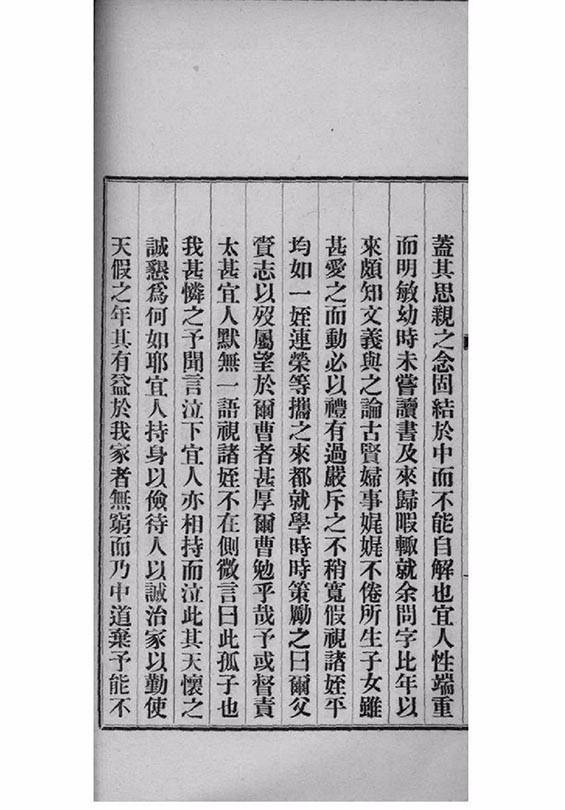 蓋其思親之念固結於中而不能自解也宜人性端重
而明敏幼時未嘗讀書及來歸暇輒就余問字比年以
來頗知文義與之論古賢婦事娓娓不倦所生子女雖
甚愛之而動必以禮有過嚴斥之不稍寬假視諸姪平
均如一姪連榮等攜之來都就學時時策勵之曰爾父
賷志以歿屬望於爾曹者甚厚爾曹勉乎哉予或督責
太甚宜人默無一語視諸姪不在側微言曰此孤子也
我甚憐之予聞言泣下宜人亦相持而泣此其天懷之
誠懇爲何如耶宜人持身以儉待人以誠治家以勤使
天假之年其有益於我家者無窮而乃中道棄予能不